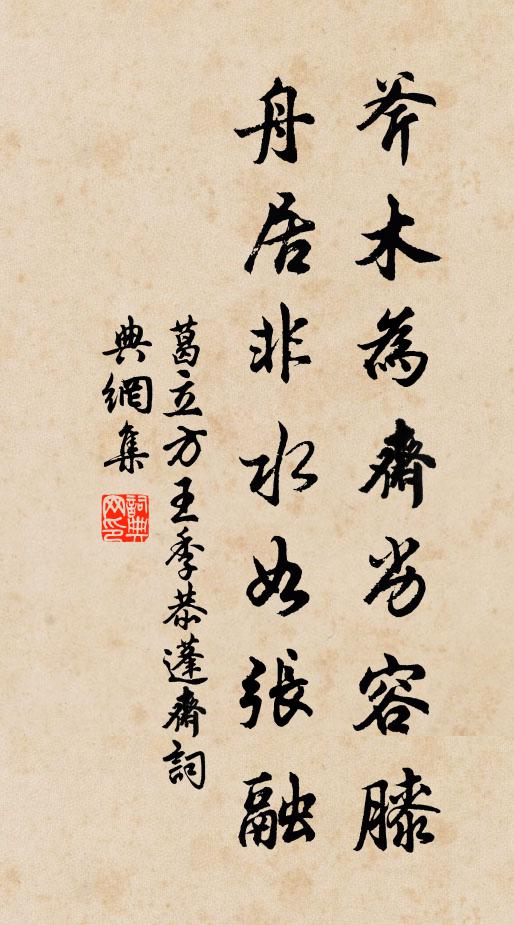 斧木為齋劣容膝
舟居非水如張融
葛立方王季恭蓬齋詞
典網集
詞典網印